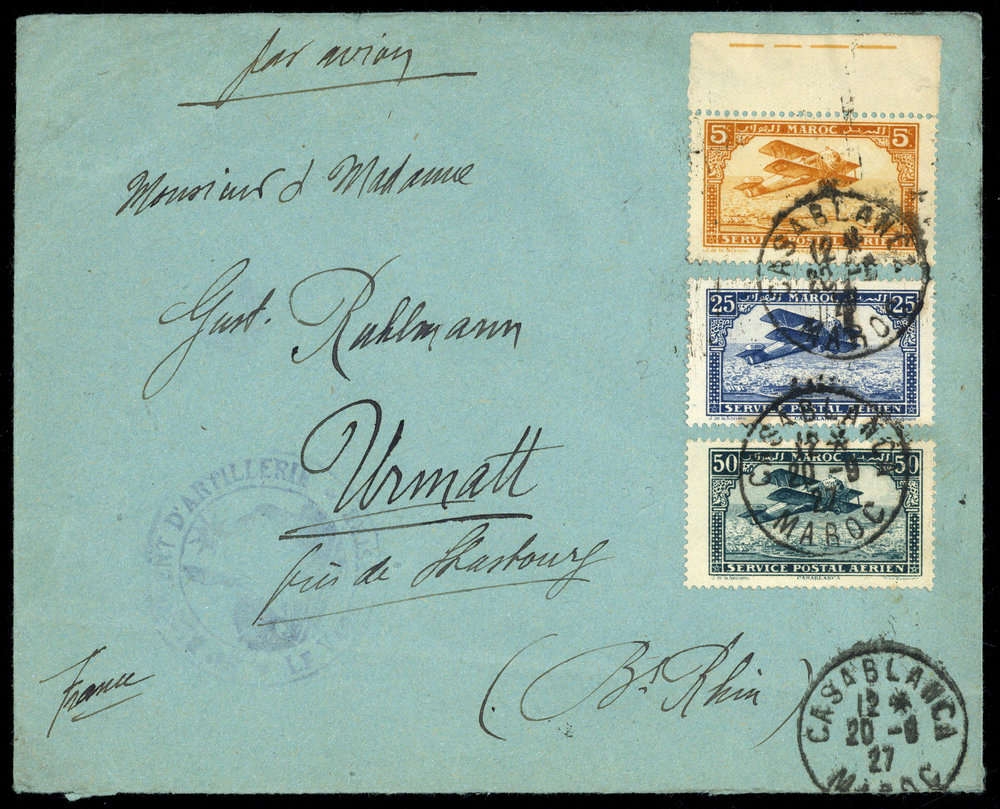 par avion
Monsieur & Madame
Gust. Ruhlmann
Urmatt
près de Strasbourg
(Bs Rhin)
France
5c MAROC 5c
SERVICE POSTAL AÉRIEN
25 MAROC 25
SERVICE POSTAL AÉRIEN
50 MAROC 50
SERVICE POSTAL AÉRIEN
CASABLANCA
CASABLANCA
12 *
MAROC
CASABLANCA
12 *
20 -8
27
MAROC
CASABLANCA
12 *
20 -8
27
MAROC
D'ARTILLERIE
LE